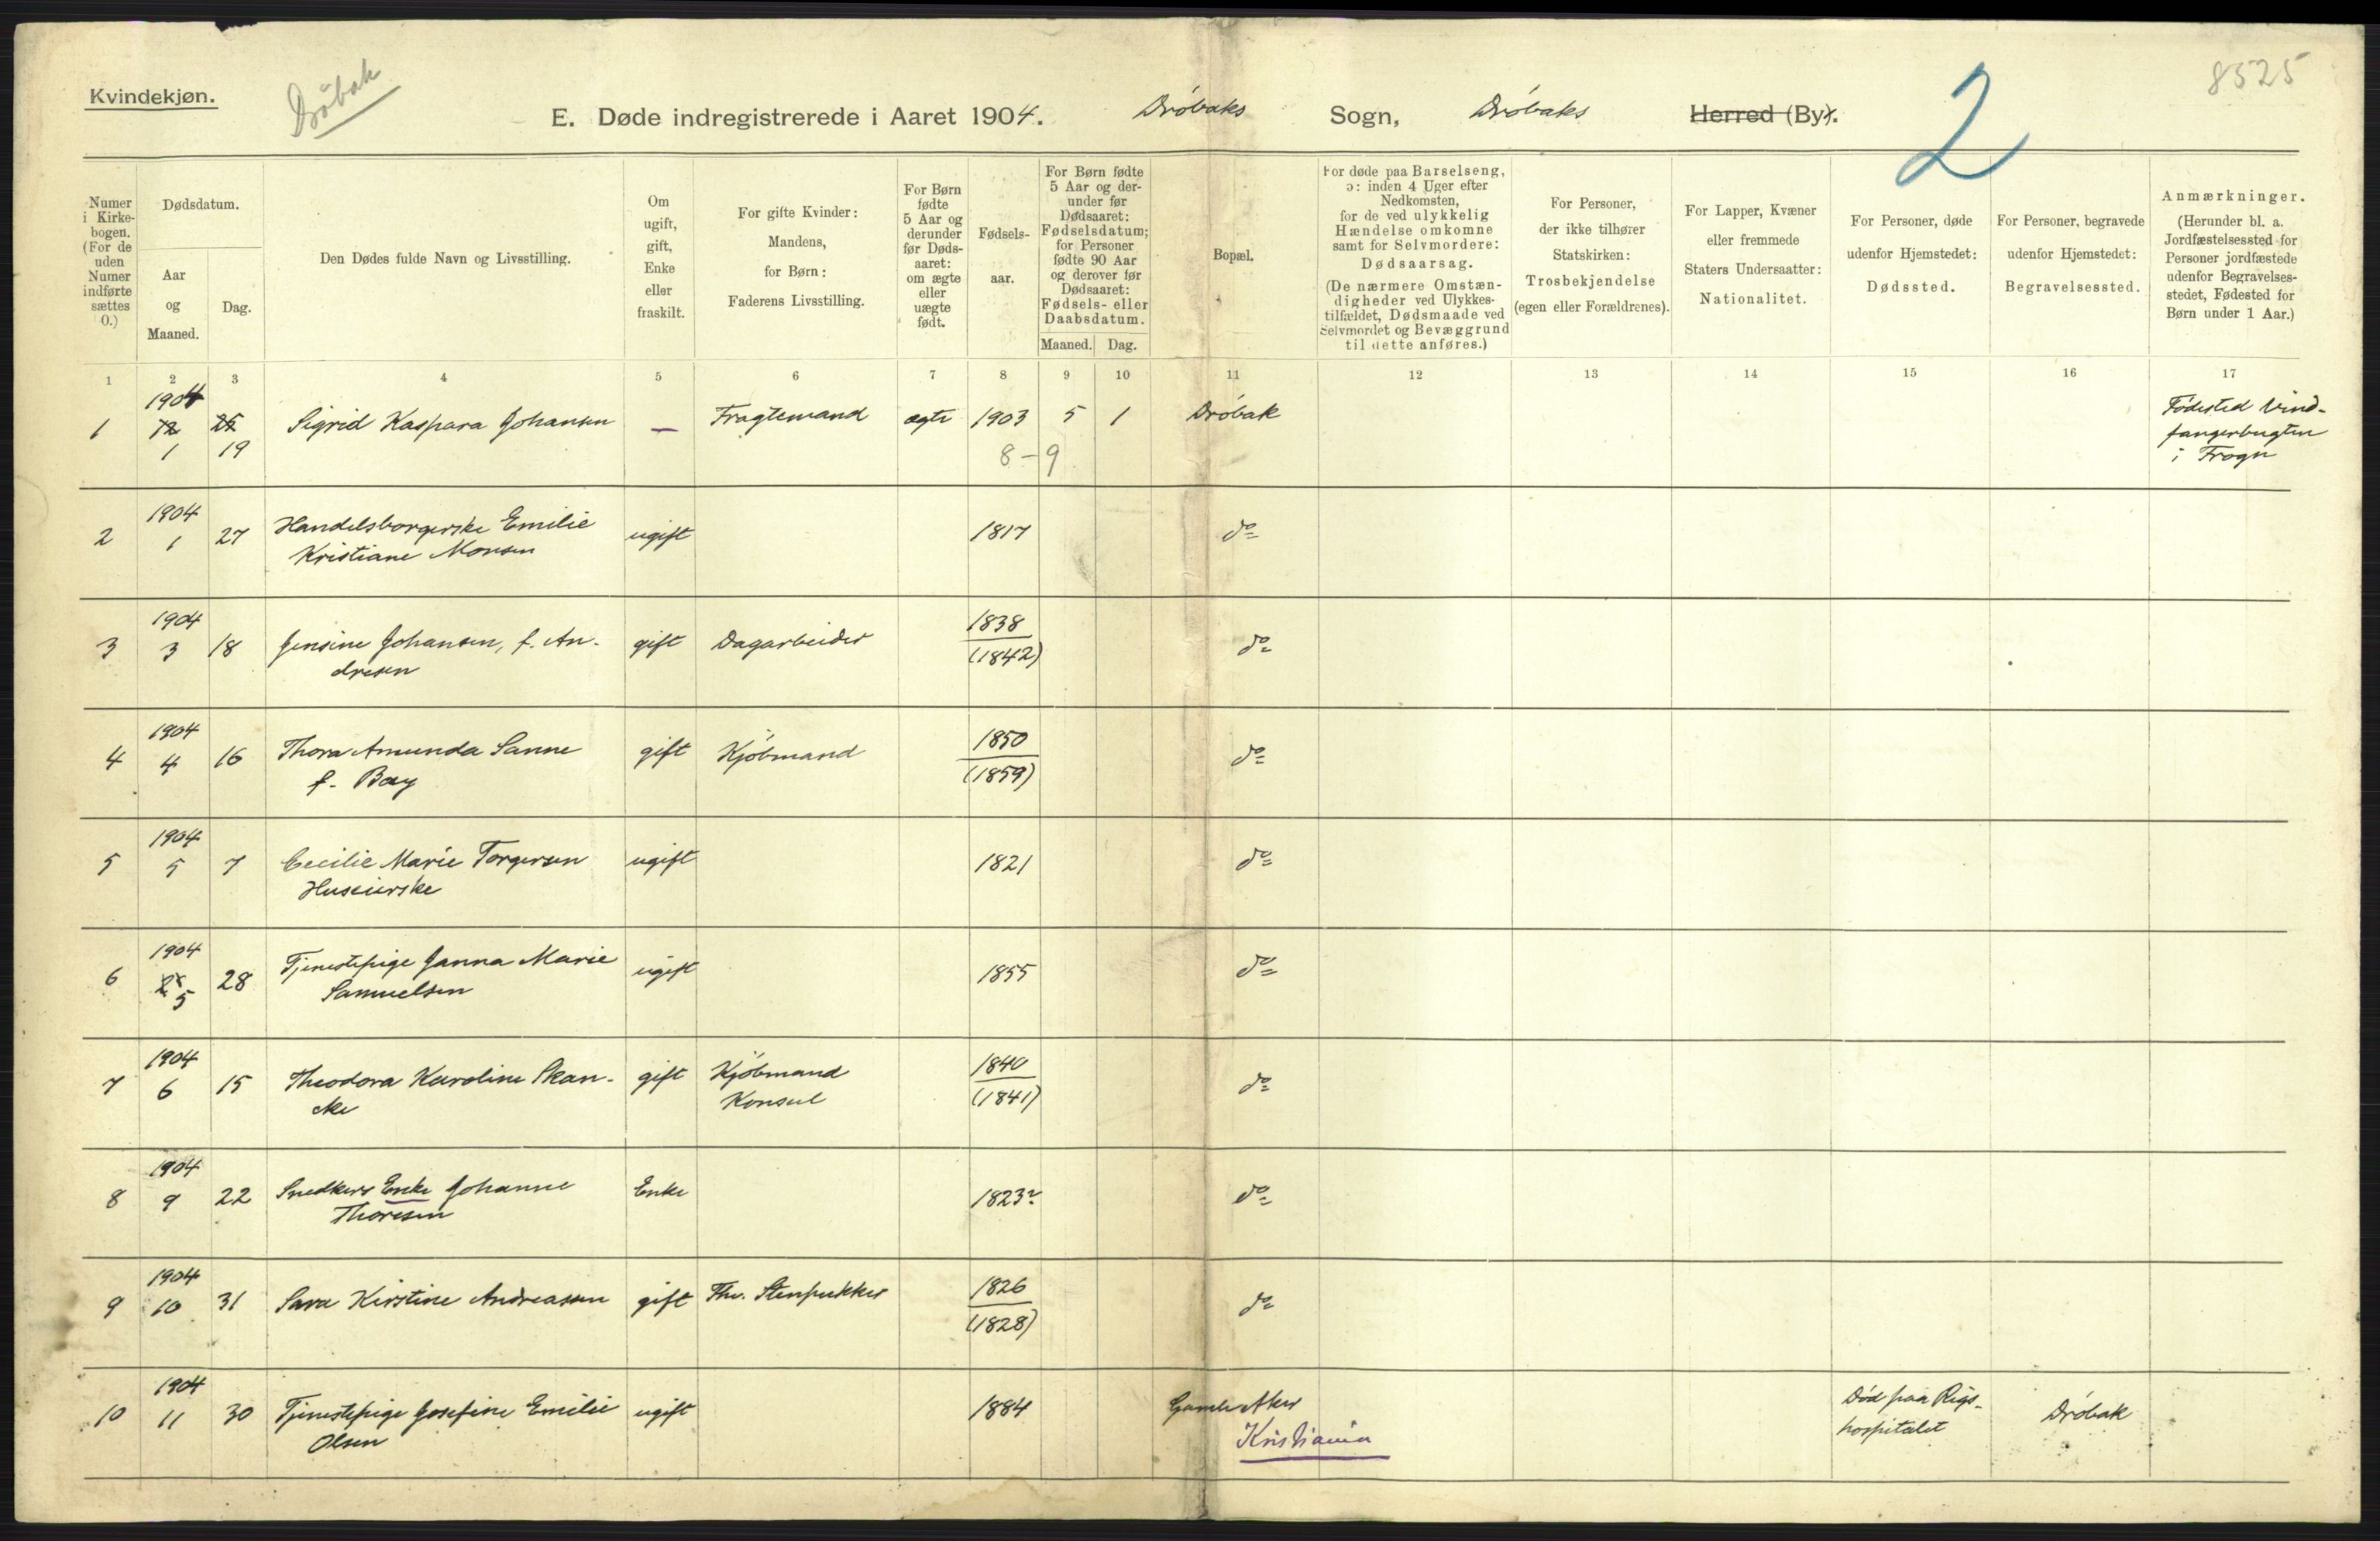 Kvindekjøn.
Drøbak
8525
2
E. Døde indregistrerede i Aaret 1904. Drøbaks Sogn, Drøbaks Herred (By).
Numer i Kirkebogen. (For de uden Numer indførte sættes 0.)
Dødsdatum.
Aar og Maaned.
Dag.
Den Dødes fulde Navn og Livsstilling.
Om ugift, gift, Enke eller fraskilt.
For gifte Kvinder: Mandens, for Børn: Faderens Livsstilling.
For Børn fødte 5 Aar og derunder før Dødsaaret: om ægte eller uægte født.
Fødselsaar.
For Børn fødte 5 Aar og derunder før Dødsaaret: Fødselsdatum; for Personer fødte 90 Aar og derover før Dødsaaret: Fødsels- eller Daabsdatum.
Maaned. Dag.
Bopæl.
For døde paa Barselseng, ɔ: inden 4 Uger efter Nedkomsten, for de ved ulykkelig Hændelse omkomne samt for Selvmordere: Dødsaarsag. (De nærmere Omstændigheder ved Ulykkestilfældet, Dødsmaade ved Selvmordet og Bevæggrund til dette anføres.)
For Personer, der ikke tilhører Statskirken: Trosbekjendelse (egen eller Forældrenes).
For Lapper, Kvæner eller fremmede Staters Undersaatter: Nationalitet.
For Personer, døde udenfor Hjemstedet: Dødssted.
For Personer, begravede udenfor Hjemstedet: Begravelsessted.
Anmærkninger. (Herunder bl. a. Jordfæstelsessted for Personer jordfæstede udenfor Begravelsesstedet, Fødested for Børn under 1 Aar.)
1 2 3 4 5 6 7 8 9 10 11 12 13 14 15 16 17
1 1904 12 25 Sigrid Kaspara Johansen — Fragtemand ægte 1903 5 1 Drøbak Fødested Vind-
fangerbugten
1 19 8-9 i Frogn
2 1904 1 27 Handelsborgerske Emilie
Kristiane Monsen ugift 1817 do
3 1904 3 18 Jensine Johansen, f. An-
dresen gift Dagarbeider 1838
(1842) do
4 1904 4 16 Thora Amunda Sanne
f. Bay gift Kjøbmand 1850
(1859) do
5 1904 5 7 Cecilie Marie Torgersen
Huseierske ugift 1821 do
6 1904 5 28 Tjenestepige Janna Marie
Samuelsen ugift 1855 do
7 1904 6 15 Theodora Karoline Skan-
cke gift Kjøbmand
Konsul 1840
(1841) do
8 1904 9 22 Snedkers Enke Johanne
Thoresen Enke 1823? do
9 1904 10 31 Sara Kirstine Andreassen gift Fhv. Stenpukker 1826
(1828) do
10 1904 11 30 Tjenestepige Josefine Emilie
Olsen ugift 1884 Gamle Aker
Kristiania Død paa Rigs-
hospitalet Drøbak